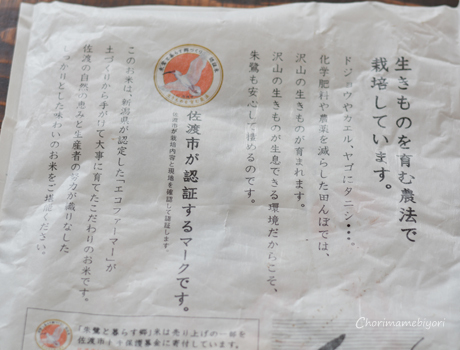 生きものを育む農法で
栽培しています。
ドジョウやカエル、ヤゴにタニシ・・・。
化学肥料や農薬を減らした田んぼでは、
沢山の生きものが育まれます。
沢山の生きものが生息できる環境だからこそ、
朱鷺も安心して棲めるのです。
佐渡市が認証するマークです。
佐渡市が栽培内容と現地を確認して認証します。
このお米は、新潟県が認定した「エコファーマー」が
土づくりから手がけて大事に育てたこだわりのお米です。
佐渡の自然の恵みと生産者の
味わいのお米をご堪能ください。
「朱鷺と暮らす郷」米は売り上げの一部を
佐渡市トキ保護基金に寄付しています。
Charimamebiyori